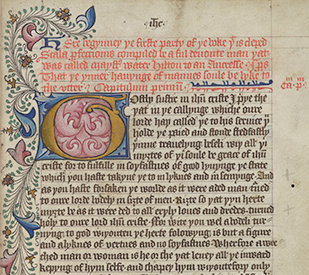 ihc
Here begynneþ þe firste party of þe boke þat is cleped
Scala perfeccionis compiled be a ful deuoute man þat
was called mayster Water hilton to an Ancresse
That þe ynner hauynge of mannes soule be lyke to
the vtter Capitulum primum
Ca.p.
Gostly suster in ihu criste I prye the
þat in þe callynge which oure
lorde haþ called þe to his seruice þu
holde þe paied and stonde stedfastly
þerinne traueilynge besely wiþ all þi
myȝtes of þi soule be grace of ihu
criste for to fulfille in soþfastnes of good lyuynge þe state
which þou hast takyn þe to in lyknes and in semynge And
as þou hast forsaken þe worlde as it were a ded man turned
to oure lorde bodely in siȝte of men Riȝte so þat þyn herte
myȝte be as it were ded to all erþly loues and dredes turned
holy to oure lord ihu criste ffor wite þou wel a bodely tur
nynge to god wiþouten þe herte folowynge is but a figure
and a lyknes of vertues and no soþfastnes Wherfore a wre
ched man or woman is he or she þat leueþ all þe inward
kepynge of hym selfe and shapeþ hym wiþouteforþ only